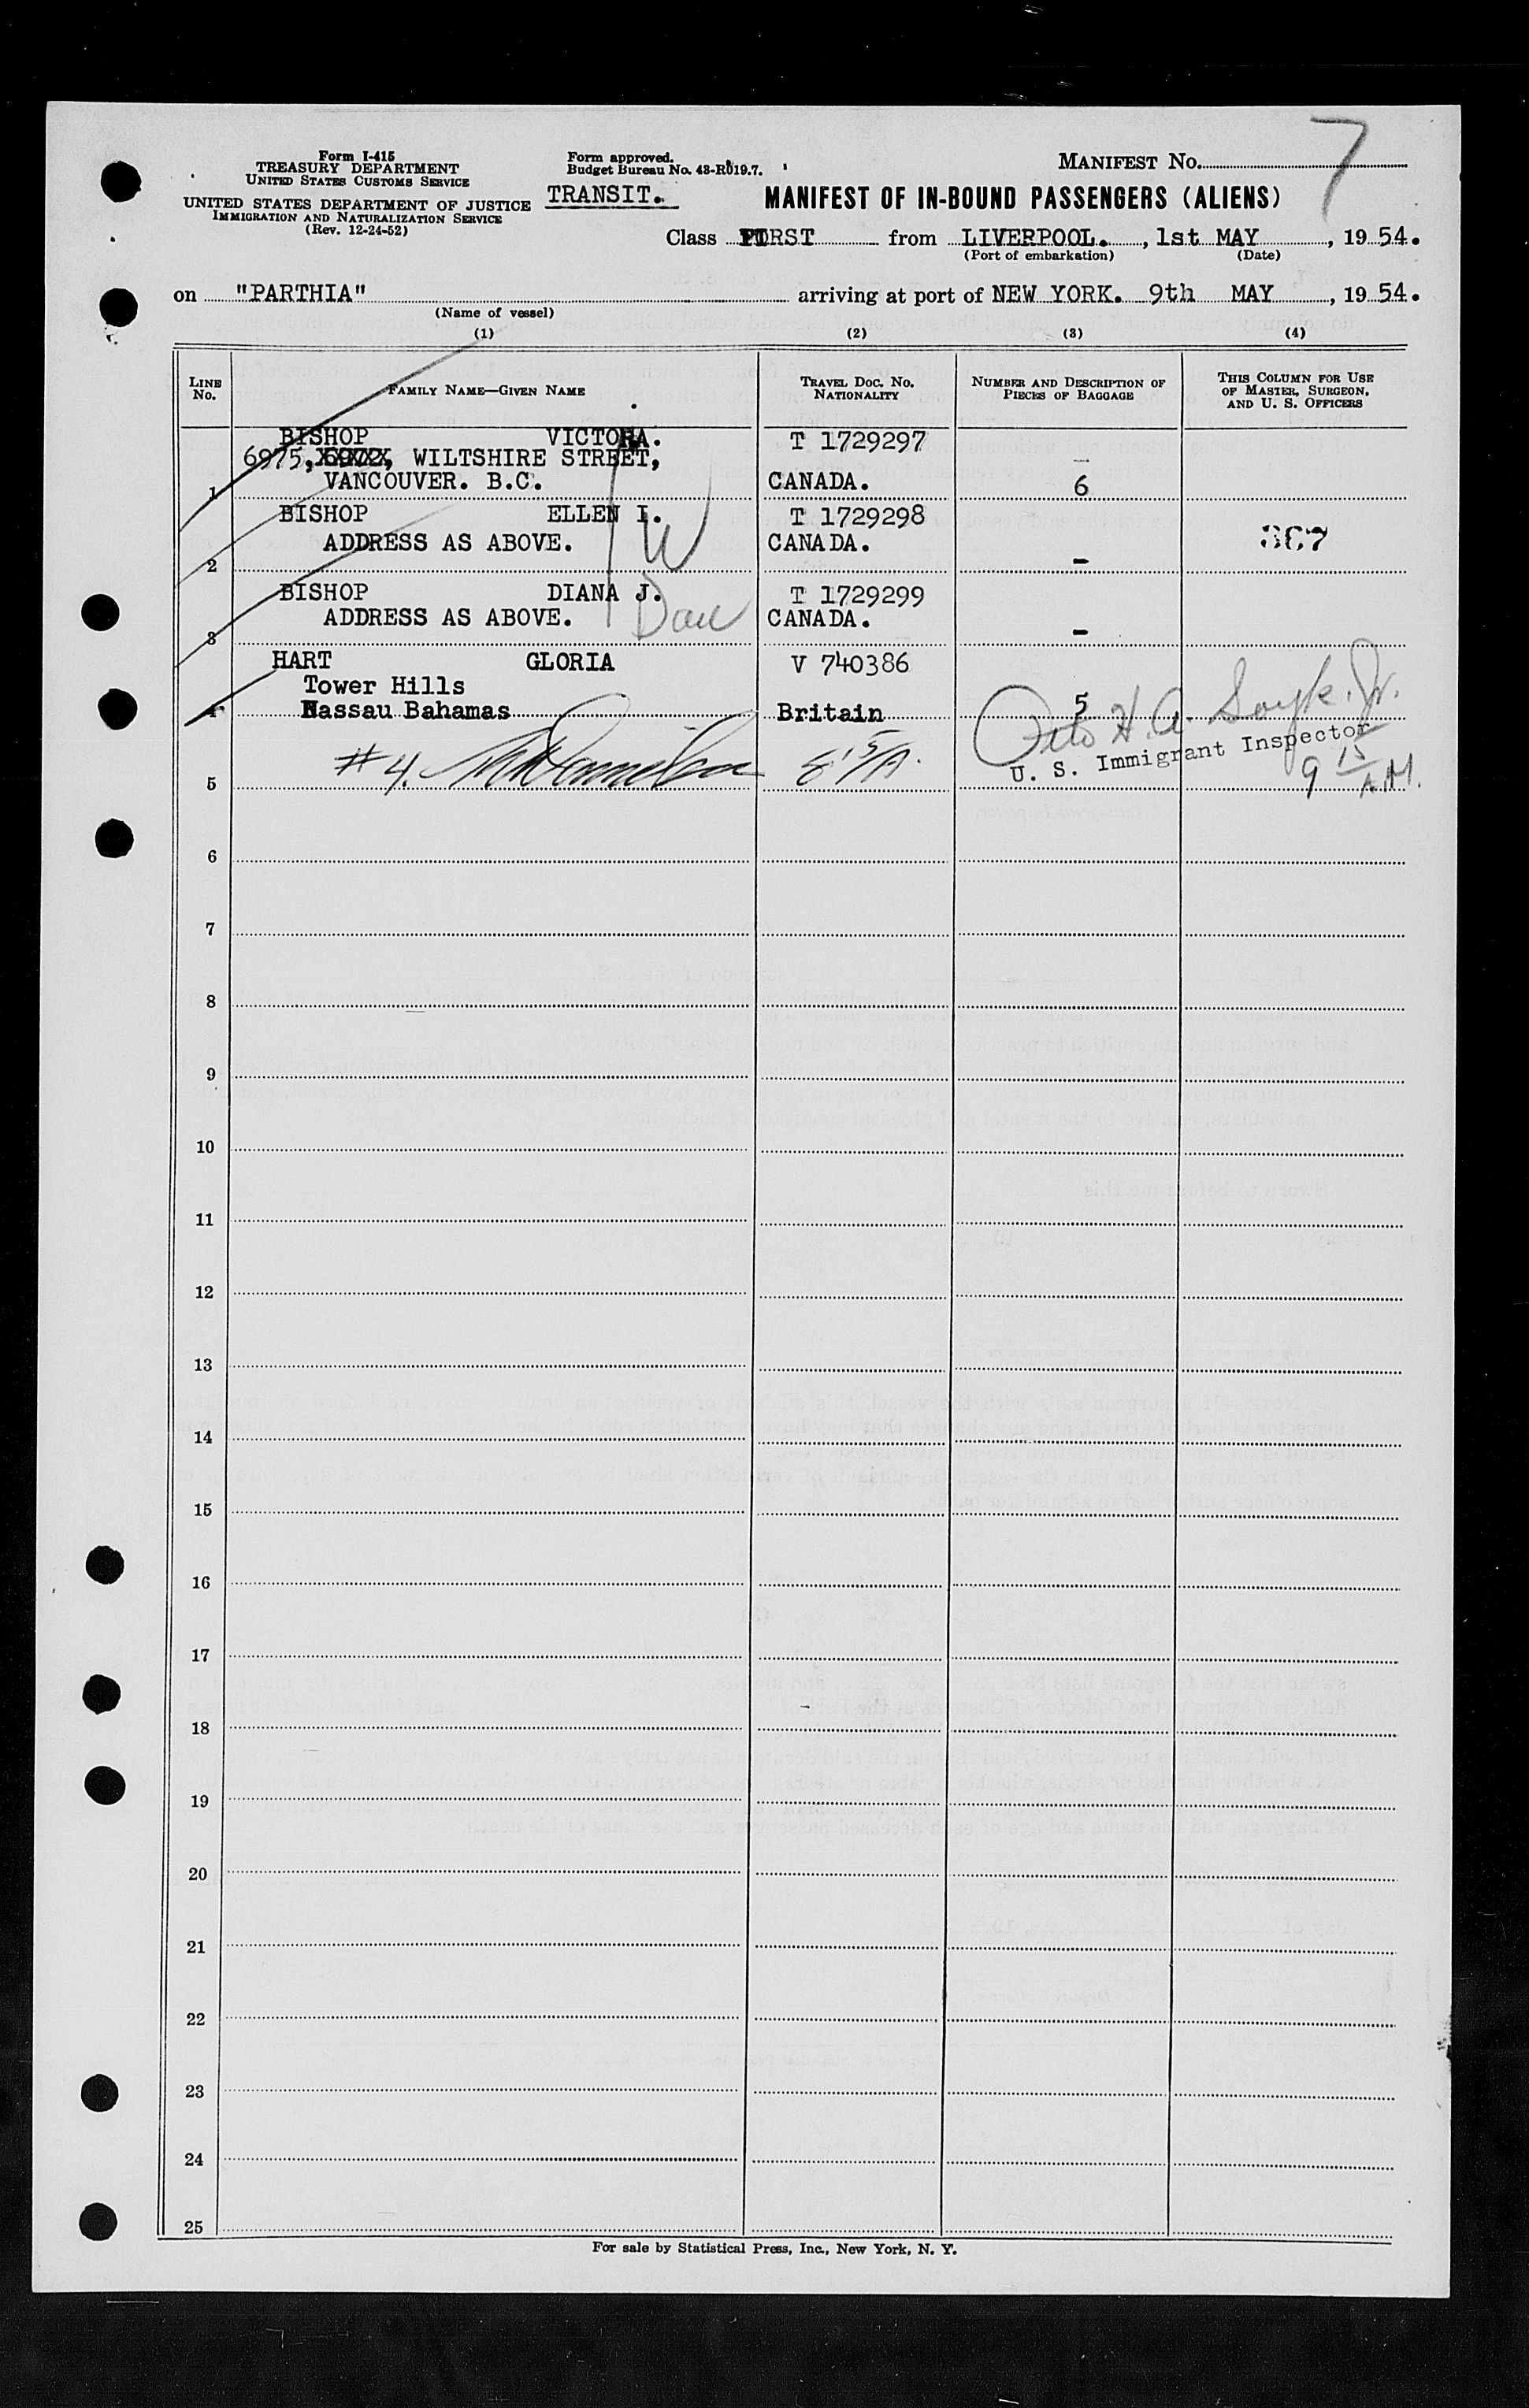 Form I-415
TREASURY DEPARTMENT
UNITED STATES CUSTOMS SERVICE
UNITED STATES DEPARTMENT OF JUSTICE
IMMIGRATION AND NATURALIZATION SERVICE
(Rev. 12-24-52)
Form approved.
Budget Bureau No. 43-R019.7.
TRANSIT.
MANIFEST No. 7
MANIFEST OF IN-BOUND PASSENGERS (ALIENS)
Class FIRST from LIVERPOOL., 1st MAY, 1954.
(Port of embarkation) (Date)
on "PARTHIA" arriving at port of NEW YORK. 9th MAY, 1954.
(Name of vessel)
(1) (2) (3) (4)
LINE No. FAMILY NAME—GIVEN NAME TRAVEL DOC. NO. NATIONALITY NUMBER AND DESCRIPTION OF PIECES OF BAGGAGE THIS COLUMN FOR USE OF MASTER, SURGEON, AND U. S. OFFICERS
BISHOP VICTORA. T 1729297
6975, WILTSHIRE STREET,
1 VANCOUVER. B.C. CANADA. 6
BISHOP ELLEN I. T 1729298
ADDRESS AS ABOVE. CANADA. 367
2 -
BISHOP DIANA J. T 1729299
ADDRESS AS ABOVE. CANADA.
3 -
HART GLORIA V 740386
Tower Hills
4 Nassau Bahamas Britain 5
#4.
U. S. Immigrant Inspector
9 15 A.M.
5
6
7
8
9
10
11
12
13
14
15
16
17
18
19
20
21
22
23
24
25
For sale by Statistical Press, Inc., New York, N. Y.